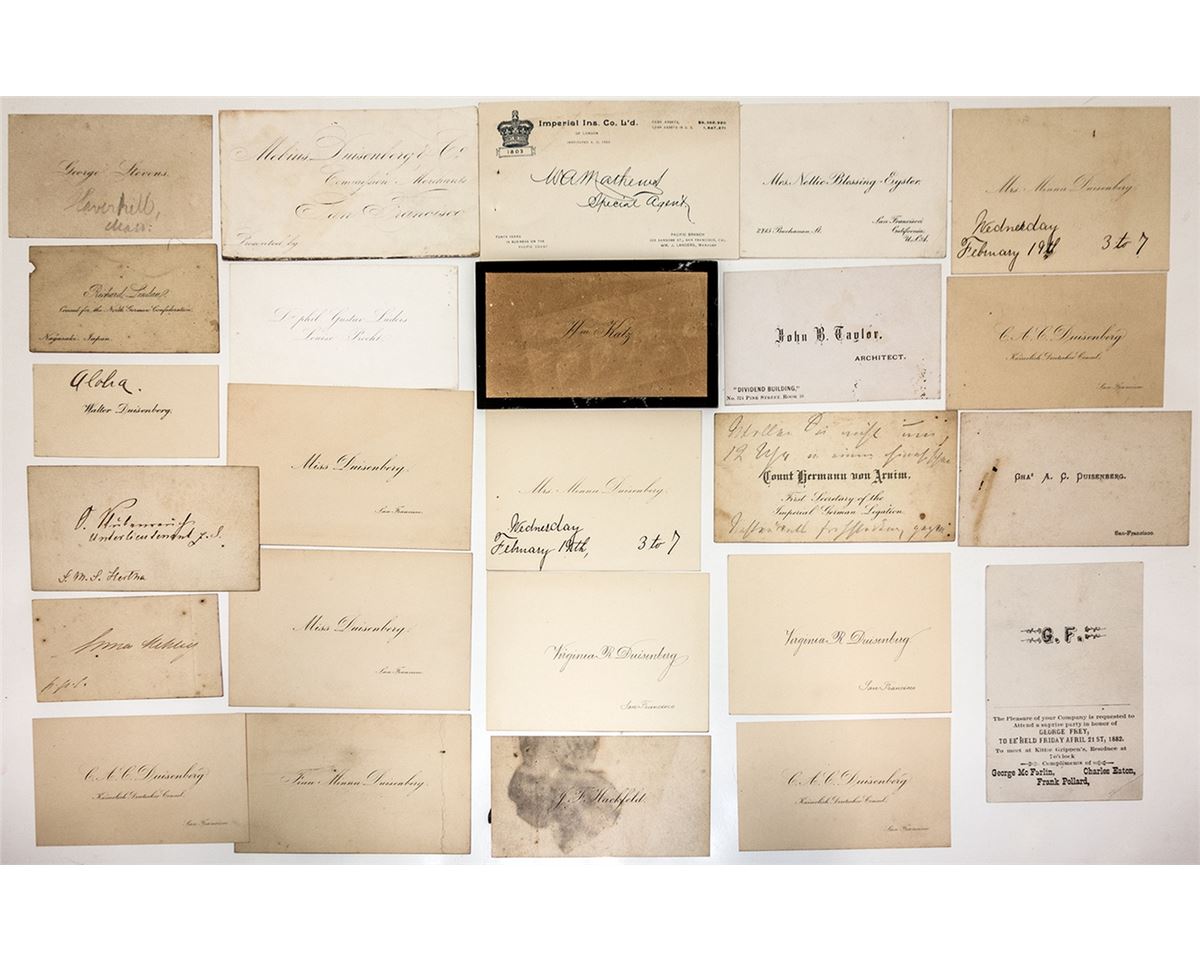 George Stevens.
Haverhill,
Mass:
Mebius, Duisenberg & Co.
Commission Merchants
San Francisco
Presented by
1803
Imperial Ins. Co. L't'd.
OF LONDON
INSTITUTED A. D. 1803
CASH ASSETS,
CASH ASSETS IN U. S.
WA Mathews
Special Agent
FORTY YEARS
IN BUSINESS ON THE
PACIFIC COAST
PACIFIC BRANCH
SAN FRANCISCO, CAL.
WM. J. LANDERS, MANAGER
Mrs. Nellie Blessing Eyster.
2765 Buchanan St.
San Francisco
California,
U.S.A.
Mrs. Menna Duisenberg
Wednesday
February 19th
3 to 7
Richard Lindau,
Consul for the North German Confederation.
Nagasaki. Japan.
Dr phil Gustav Luders
Louise
Wm Katz
John B. Taylor.
ARCHITECT.
"DIVIDEND BUILDING,"
No. 324 PINE STREET. ROOM
C. A. C. Duisenberg
Kaiserlich Deutscher Consul.
San Francisco
Aloha.
Walter Duisenberg.
Miss Duisenberg.
San Francisco.
Mrs. Menna Duisenberg.
Wednesday
February 19th,
3 to 7
Wollen Sie nicht um
12 Uhr
Count Hermann von Arnim.
First Secretary of the
Imperial German Legation.
Chas A. C. Duisenberg.
San-Francisco.
Unterlieutenant z. S.
S. M. S. Hertha
Miss Duisenberg.
San Francisco.
Virginia R. Duisenberg
San Francisco
Virginia R. Duisenberg
San Francisco
G. F.
The Pleasure of your Company is requested to
Attend a suprise party in honor of
GEORGE FREY,
TO BE HELD FRIDAY APRIL 21ST, 1882.
To meet at Kittie Grippen's, Residnce at
7o'clock
Compliments of
George Mc Farlin, Charles Eaton,
Frank Pollard,
p. p. c.
C. A. C. Duisenberg
Kaiserlich Deutscher Consul.
San Francisco
Frau Menna Duisenberg.
J. F. Hackfeld.
C. A. C. Duisenberg
Kaiserlich Deutscher Consul.
San Francisco